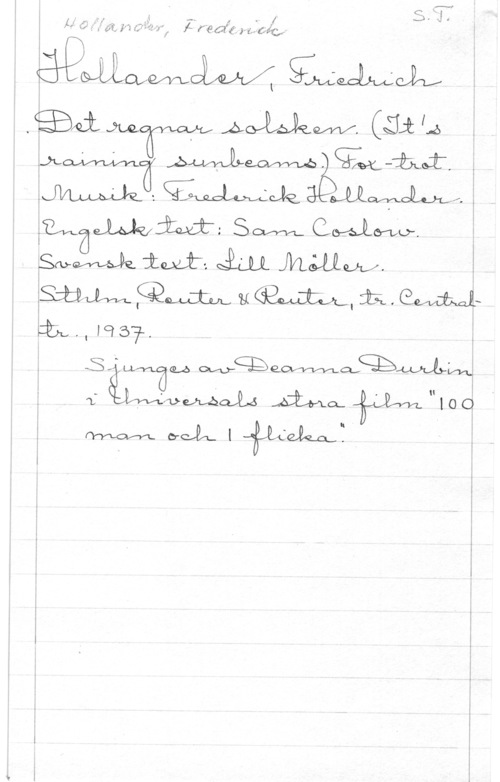 Hollander, Frederick
S.T.
Hollaender, Friedrich
Det regnar solsken. (It's
raining sunbeams) Fox-trot.
Musik: Frederick Hollander.
Engelsk text: Sam Coslow.
Svensk text: Lill Möller.
Sthlm, Reuter & Reuter, tr. Central-
tr., 1937.
Sjunges av Deanna Durbin
i Universals stora film "100
man och 1 flicka".